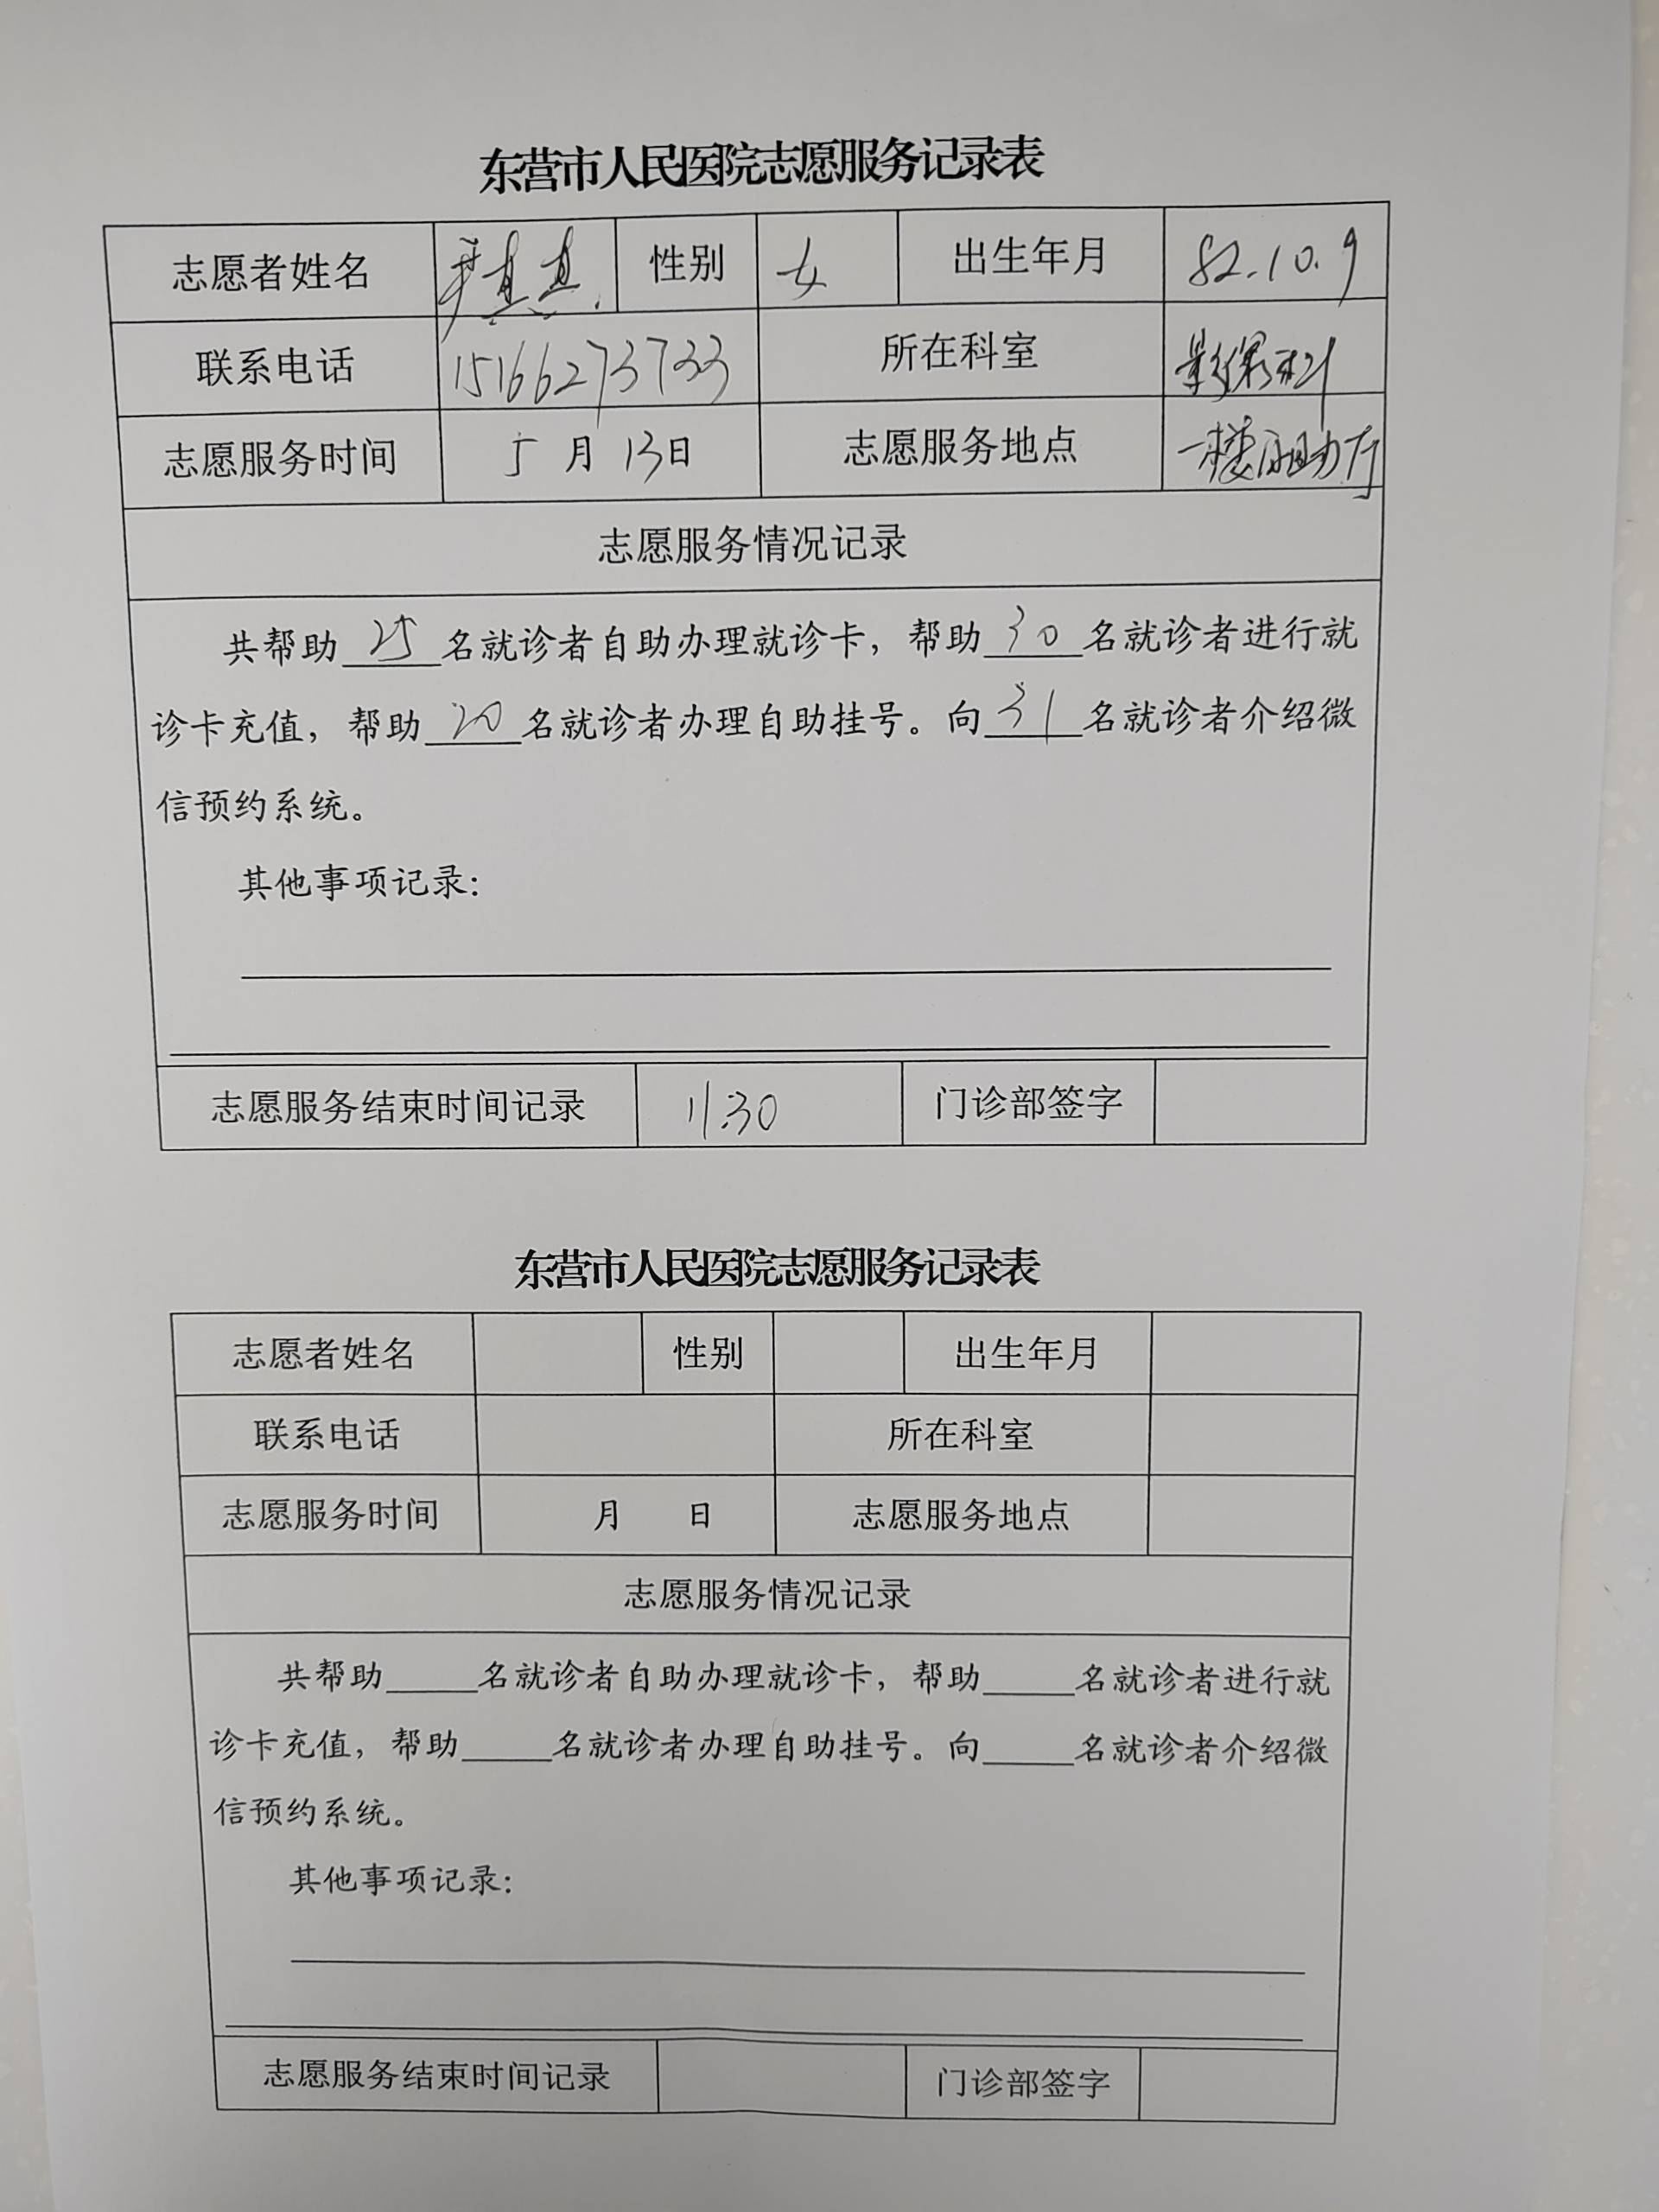 东营市人民医院志愿服务记录表
志愿者姓名 尹真真 性别 女 出生年月 82.10.9
联系电话 15166273733 所在科室 影像科
志愿服务时间 5月13日 志愿服务地点 一楼自助厅
志愿服务情况记录
共帮助25名就诊者自助办理就诊卡，帮助30名就诊者进行就
诊卡充值，帮助20名就诊者办理自助挂号。向31名就诊者介绍微
信预约系统。
其他事项记录：
志愿服务结束时间记录 11:30 门诊部签字
东营市人民医院志愿服务记录表
志愿者姓名 性别 出生年月
联系电话 所在科室
志愿服务时间 月 日 志愿服务地点
志愿服务情况记录
共帮助_____名就诊者自助办理就诊卡，帮助_____名就诊者进行就
诊卡充值，帮助_____名就诊者办理自助挂号。向_____名就诊者介绍微
信预约系统。
其他事项记录：
志愿服务结束时间记录 门诊部签字